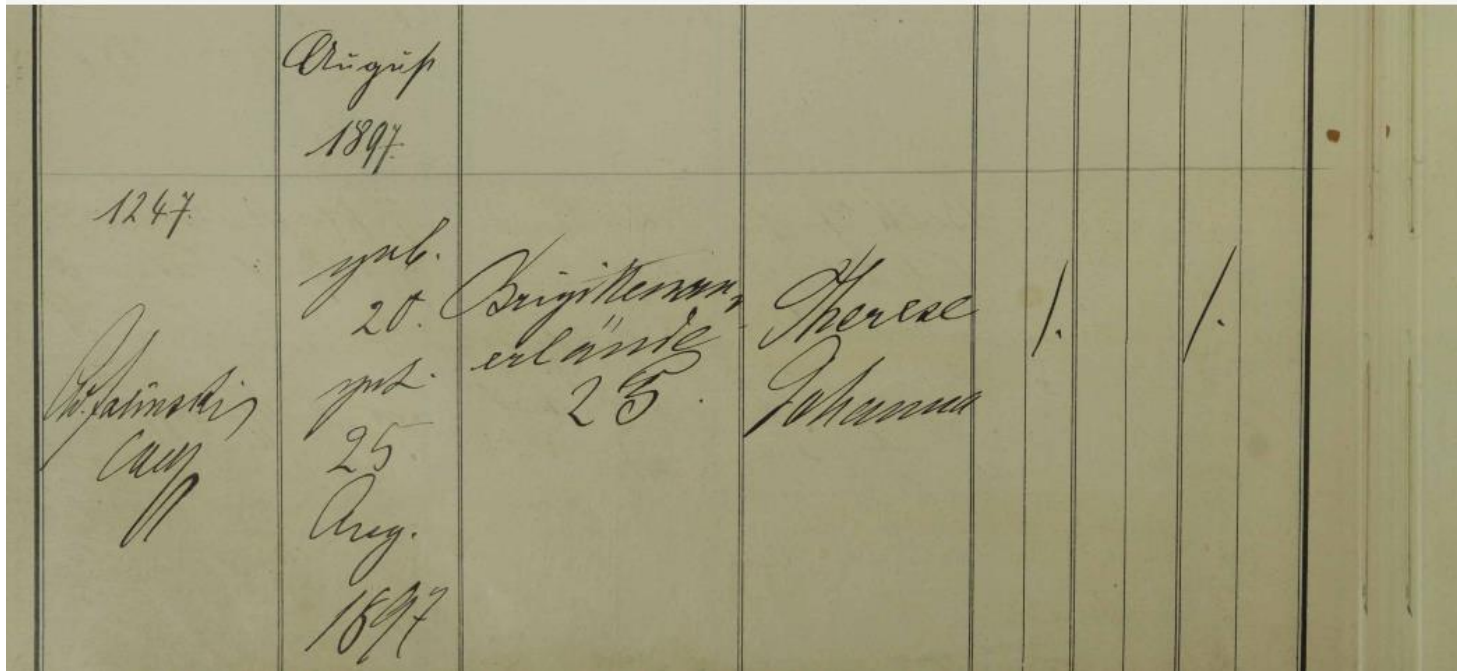 August
1897.
1247.
geb.
20.
get.
25
Aug.
1897
Brigittenau,
erlände
25.
Therese
Johanna
/.
/.